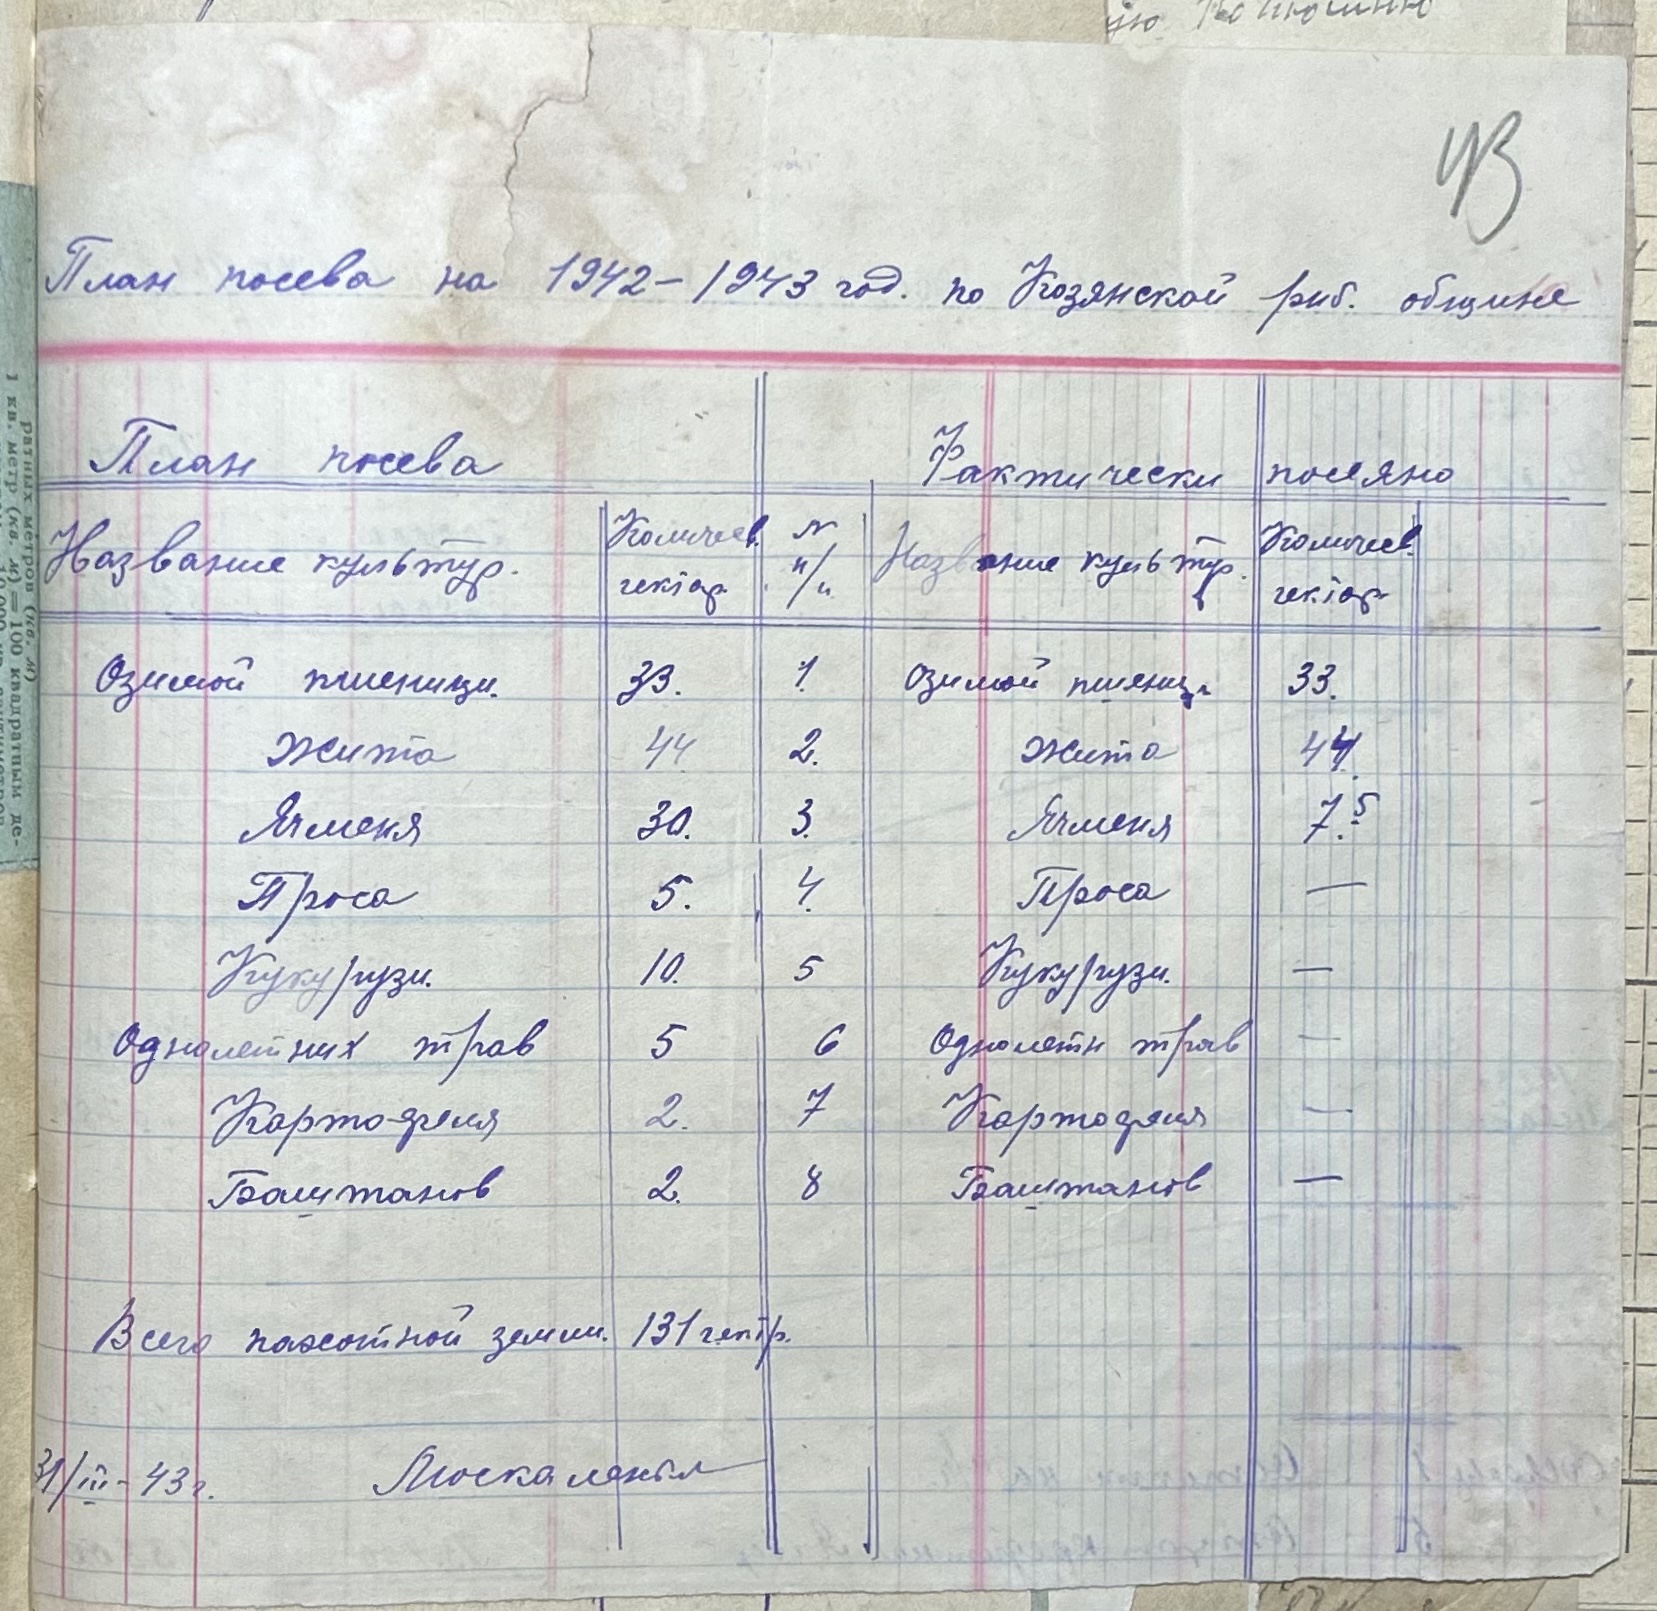 43
План посева на 1942-1943 год. по Козянской риб. общине
План посева Фактически посеяно
Название культур. Количев. гектар N п/п Название культур. Количев. гектар
Озимой пшеници. 33. 1. Озимой пшениц 33.
Жита 44 2. Жита 44.
Ячменя 30. 3. Ячменя 7.5
Проса 5. 4. Проса —
Кукурузи. 10. 5 Кукурузи. —
Однолетних трав 5 6 Однолетн трав —
Картофеля 2. 7 Картофеля —
Баштанов 2. 8 Баштанов —
Всего пахотной земли. 131 гектр.
31/III-43г. Москаленко
ратных метров (кв. м)
1 кв. метр (кв. м) = 100 квадратным де-